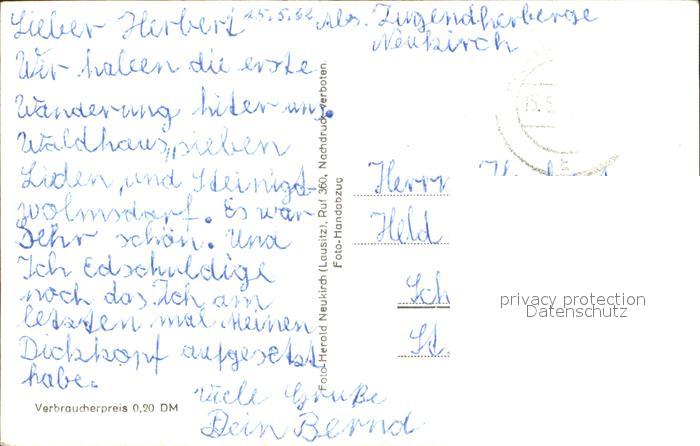 Lieber Herbert 25.5.62 Abs. Jugendherberge
Neukirch
Wir haben die erste
Wanderung hiter uns.
Waldhaus, sieben
Liden, und Steinigt-
wolmsdorf. Es war
Sehr schön. Und
Ich Edschuldige
noch das Ich am
letzten mal Meinen
Dickkopf aufgesetzt
habe.
viele Grüße
Dein Bernd
Verbraucherpreis 0,20 DM
Foto-Herold Neukirch (Lausitz), Ruf 360, Nachdruck verboten.
Foto-Handabzug
Herrn
Held
Sch
St.
privacy protection
Datenschutz